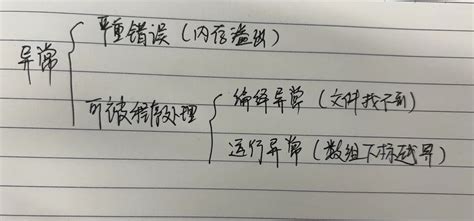 严重错误（内存溢出）
异常
可被程序处理
编译异常（文件找不到）
运行异常（数组下标越界）